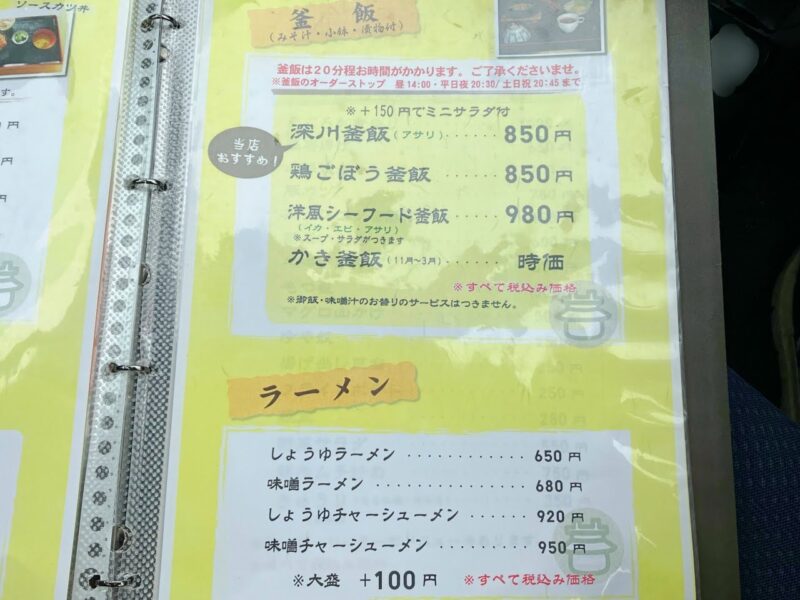 ソースカツ丼
す。
円
円
円
釜飯
(みそ汁・小鉢・漬物付)
釜飯は20分程お時間がかかります。ご了承くださいませ。
※釜飯のオーダーストップ 昼14:00・平日夜20:30/土日祝20:45まで
※+150円でミニサラダ付
当店
おすすめ!
深川釜飯(アサリ)・・・・・・850円
鶏ごぼう釜飯 850円
洋風シーフード釜飯・・・・・980円
(イカ・エビ・アサリ)
※スープ・サラダがつきます
かき釜飯(11月〜3月)・・・・・・時価
※すべて税込み価格
※御飯・味噌汁のお替りのサービスはつきません。
ラーメン
しょうゆラーメン・・・・・・・・・・・・・650円
味噌ラーメン・・・・・・・・・・・・・・・680円
しょうゆチャーシューメン・・・・・・920円
味噌チャーシューメン・・・・・・・・950円
※大盛 +100円 ※すべて税込み価格